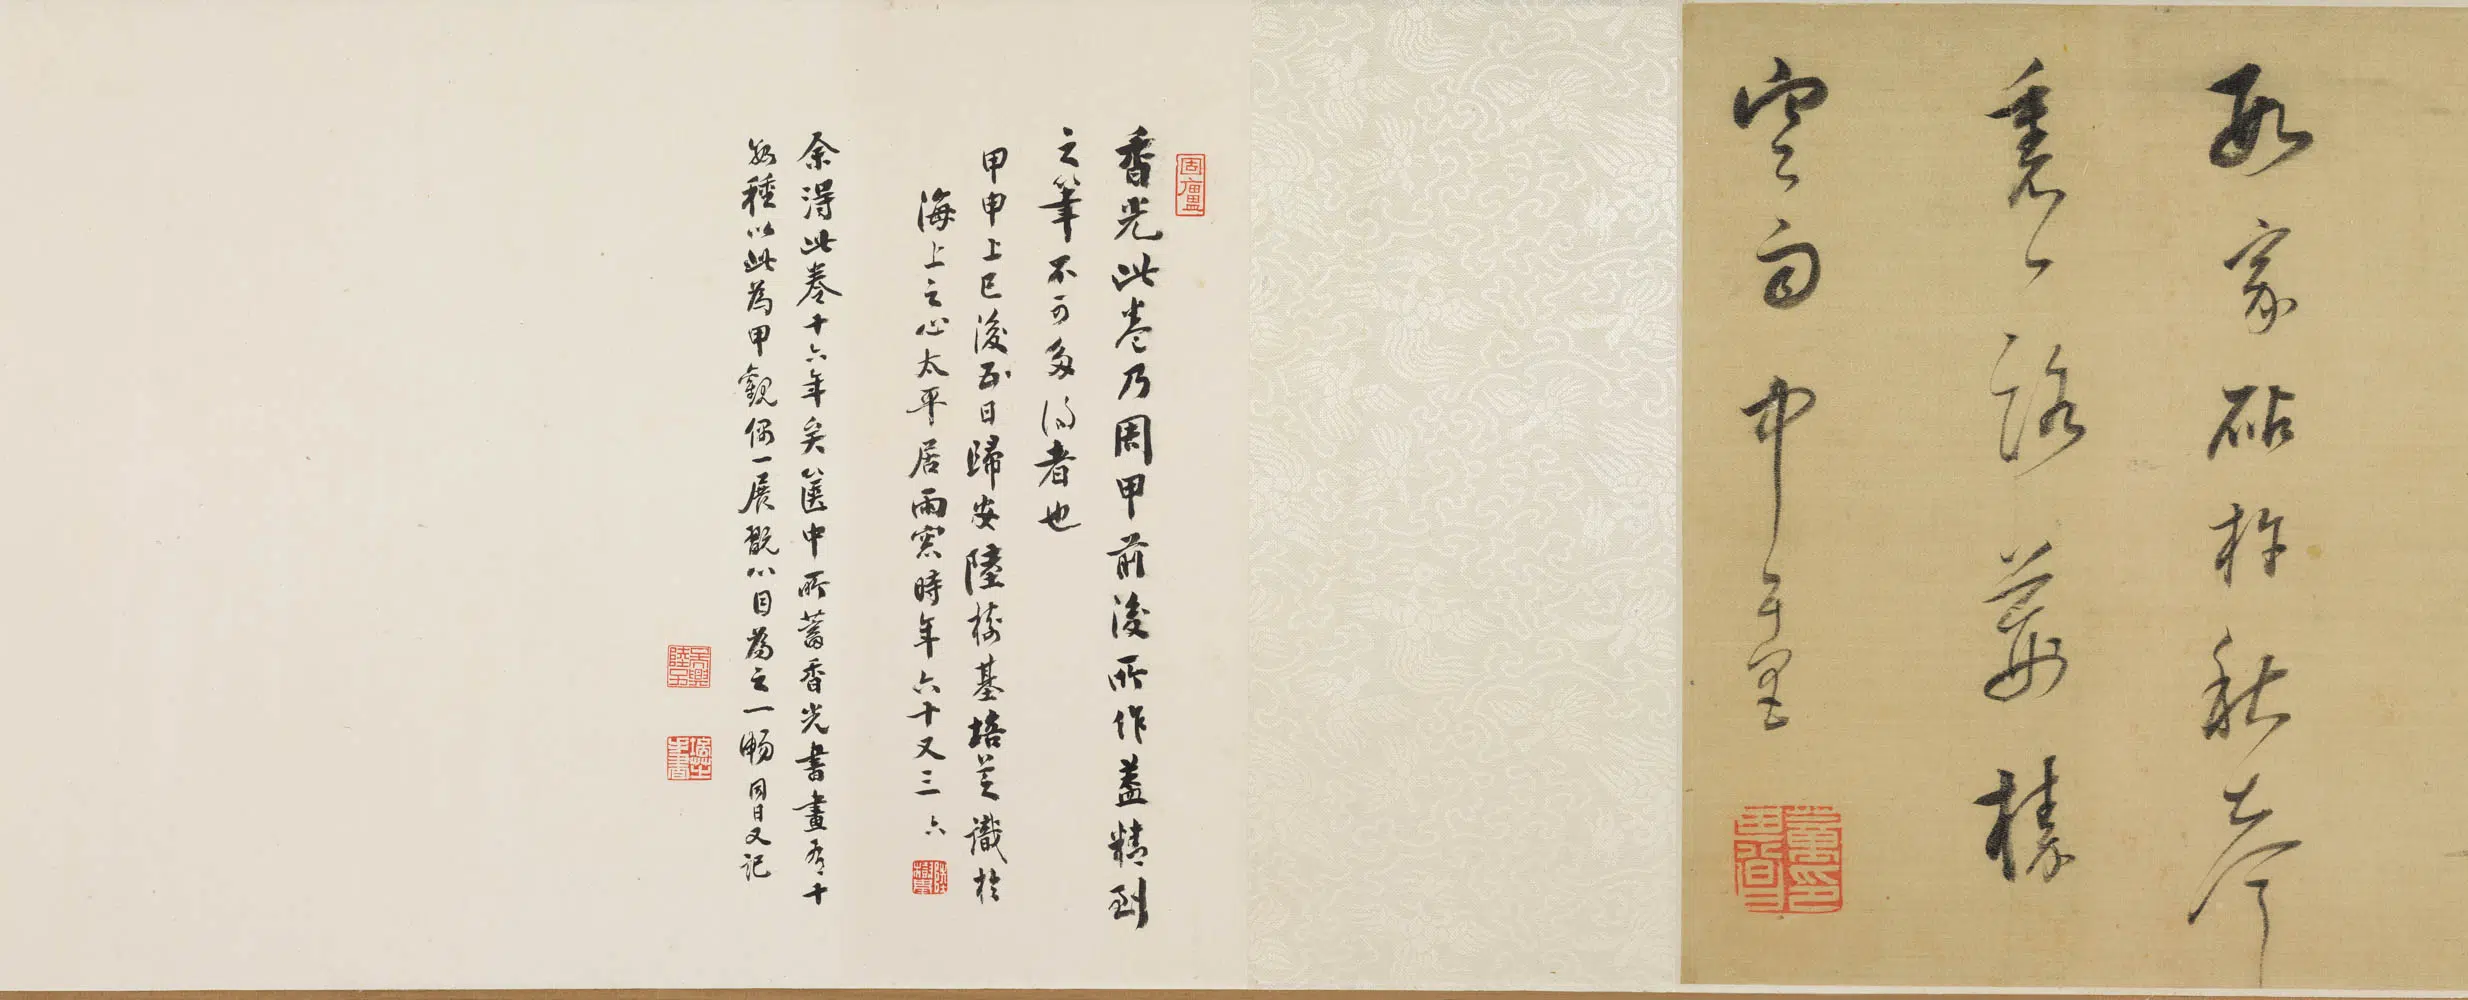 數家砧杵秋聲
裏一郡荊榛
寒雨中其昌
固廬
香光此卷乃周甲前後所作蓋精到
之筆不可多得者也
甲申上巳後五日歸安陸樹基培芝識於
海上之心太平居雨窗時年六十又三六
余得此卷十六年矣篋中所蓄香光書畫有十
餘種以此為甲觀偶一展翫心目為之一暢同日又記
吳興陸氏